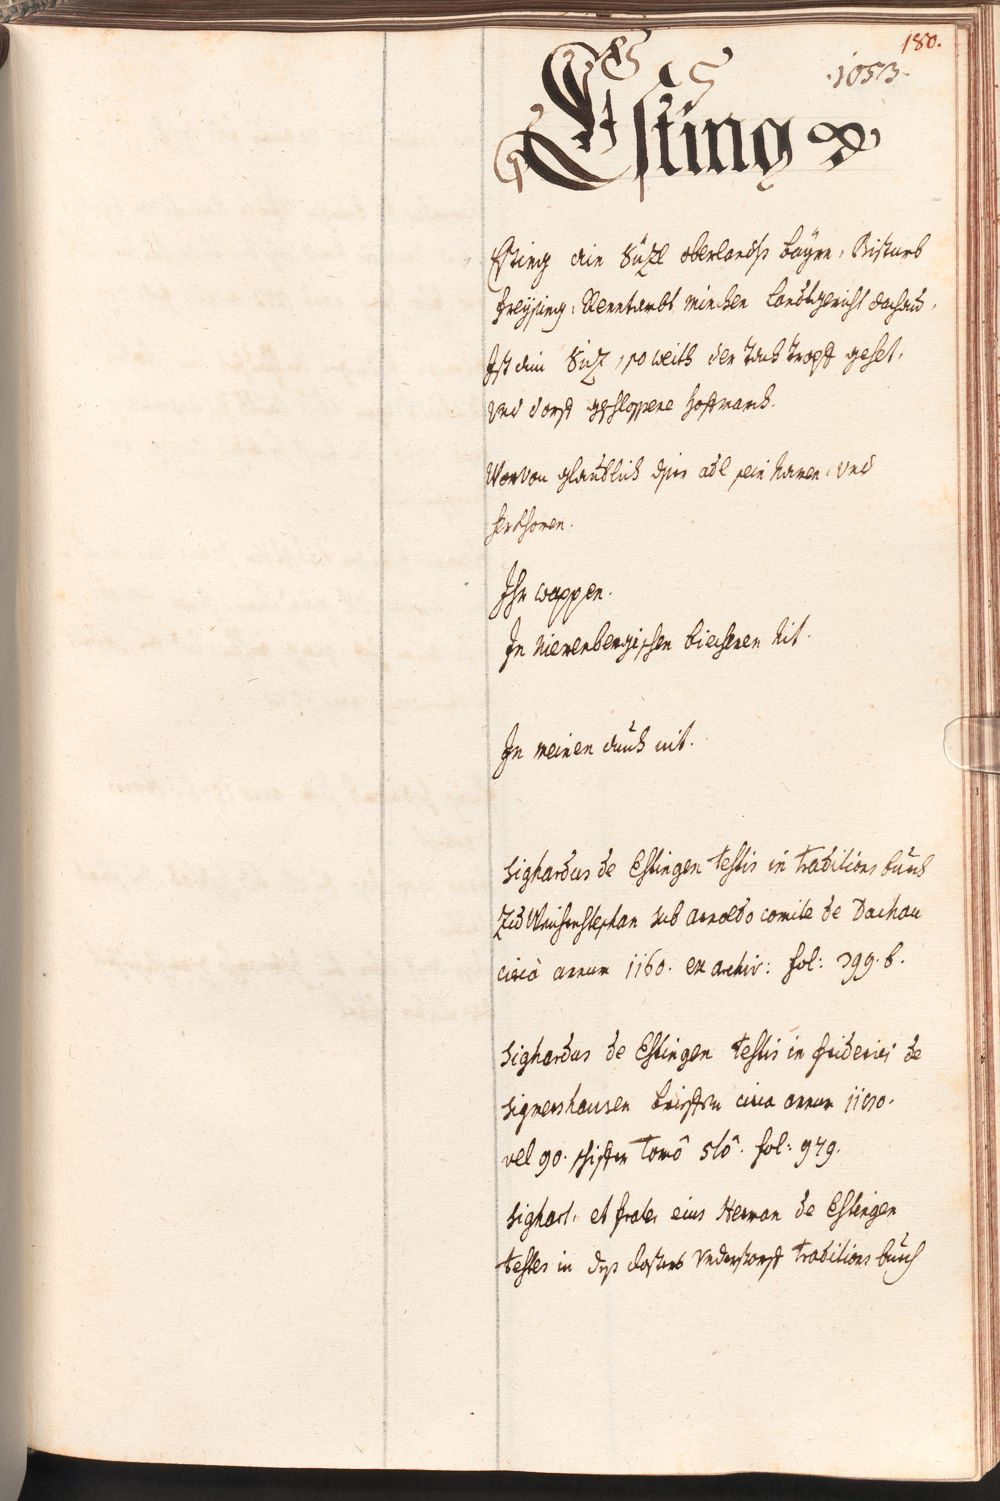 180.
1053.
Esting
Esting ein Süzl oberlandss Bayrn, Bistumb
Freysing, Renntambt minchen Landtgericht dachau,
Ist ein Siz, so weith der tach tropff gehet,
vnd dorff gschlossene hoffmarch.
Worvon glaublich dser adl sein namen, vnd
Ihr wappen.
In Nierenbergischen biecheren nit.
In meinen auch nit.
Sighardus de Estingen testis in traditions buech
zu Weichenstephan sub arnoldo comite de Dachau
circà annum 1160. ex archiv: fol: 399. b.
Sighardus de Estingen testis in friderici de
Sigmershausen brieffen circa annum
vel 90. tomô 5tô. fol: 979.
Sighart, et frater eius Herman de Estingen
testes in dess closters Understorff traditions buech